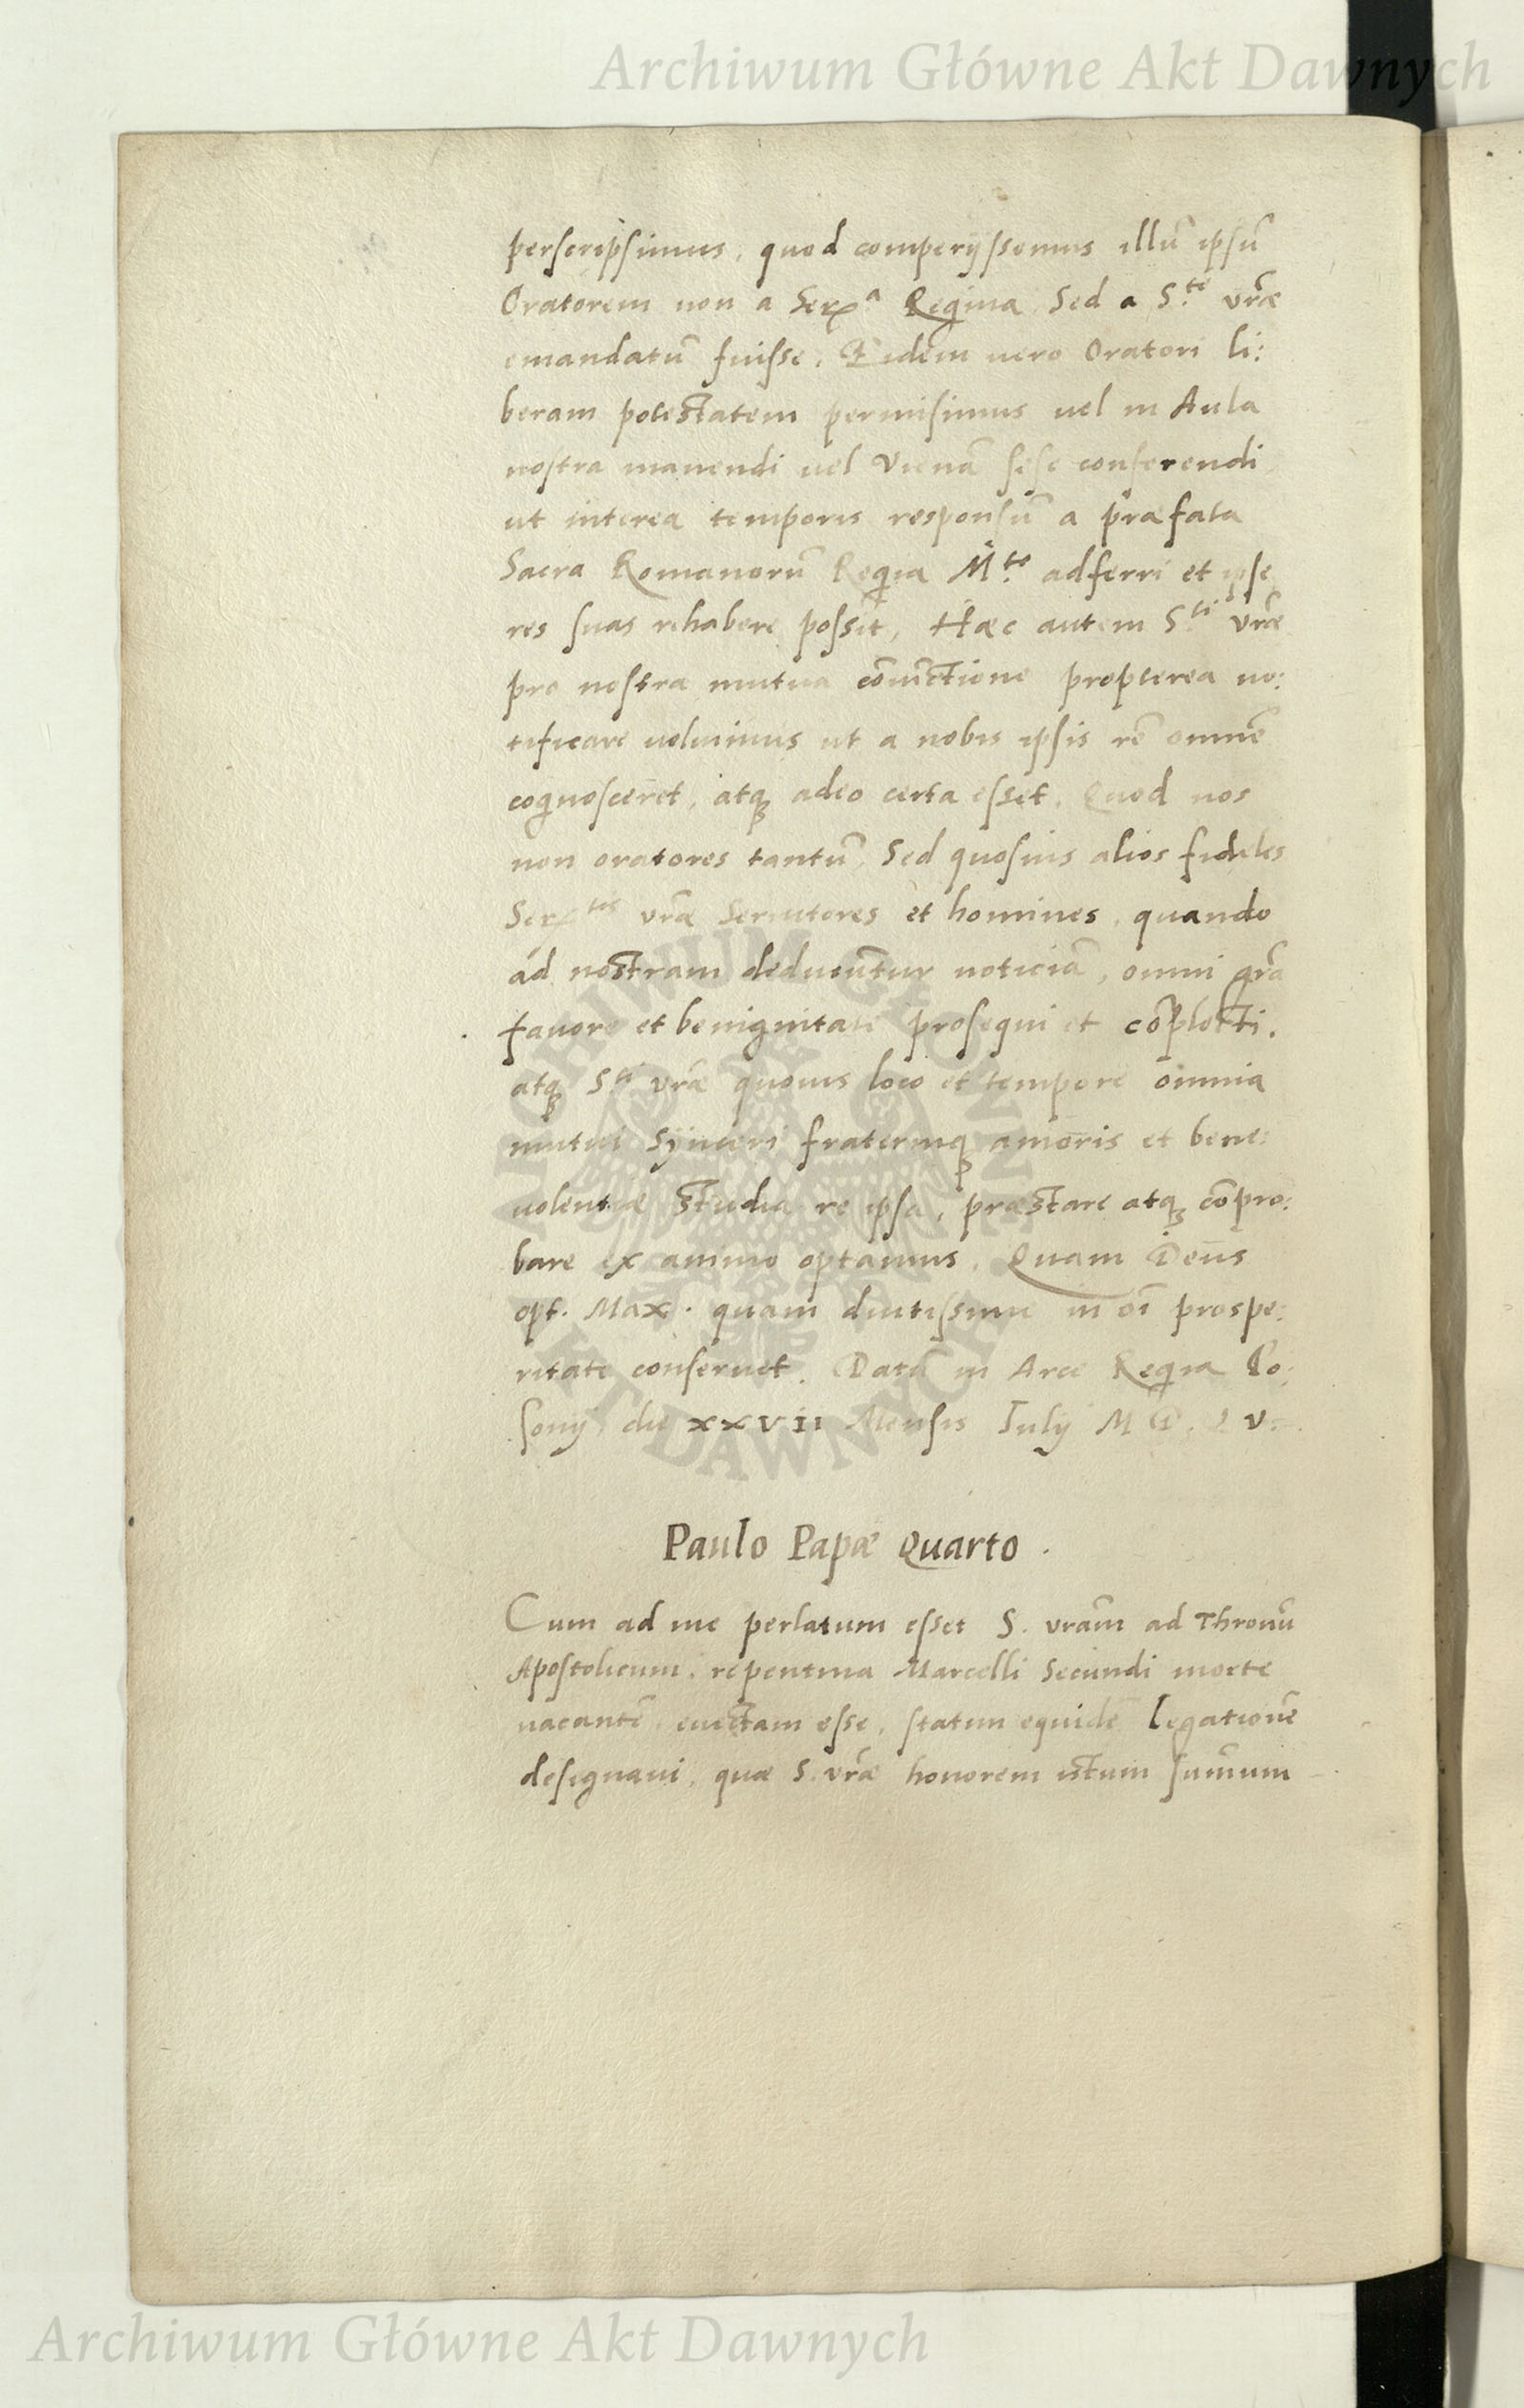 Archiwum Główne Akt Dawnych
perscripsimus, quod comperijssemus illū ipsū
Oratorem non a Ser.ma Regina Sed a S.te vrā
emandatū fuisse. Eidem uero Oratori li:
beram potestatem permisimus uel in Aula
nostra manendi uel Vienā sese conferendi
ut interea temporis responsū a præfata
Sacra Romanorū Regia M.te adferri et ipse
res suas rehabere possit, Hæc autem S.ti vræ
pro nostra mutua cōiūctione propterea no:
tificare uoluimus ut a nobis ipsis rē omnē
cognosceret, atq adeo certa esset. Quod nos
non oratores tantū, Sed quosuis alios fideles
Ser.tis vræ Seruitores et homines, quando
ad nostram deducuntur noticiā, omni grā
fauore et benignitate prosequi et cōplecti.
atq S.ti vræ quouis loco et tempore omnia
mutui Synceri fraterniq amoris et bene:
uolentiæ studia re ipsa, præstare atq cōpro:
bare ex animo optamus. Quam Deus
opt. Max. quam diutissime in oī prospe:
ritate conseruet. Datū in Arce Regia Po:
sonij die XXVII Mensis Iulij M D. L V.
Paulo Papæ Quarto.
Cum ad me perlatum esset S. vram ad Thronū
Apostolicum, repentina Marcelli Secundi morte
uacantē, euectam esse, statim equidē legationē
designaui, quæ S. vræ honorem istum summum
ARCHIWUM GŁÓWNE
AKT DAWNYCH
Archiwum Główne Akt Dawnych